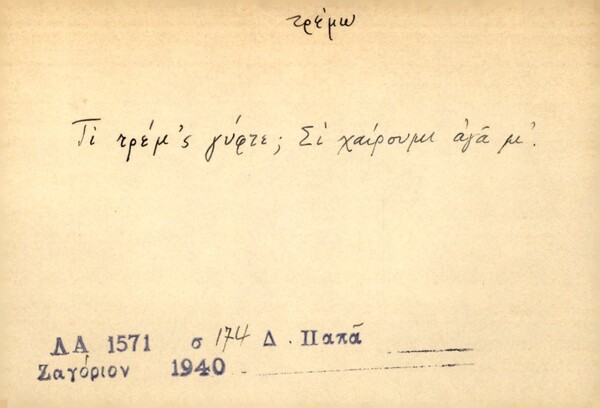 τρέμω
Τί τρέμ'ς γύφτε; Σὶ χαίρουμι ἀγᾶ μ'.
ΛΑ 1571 σ 174 Δ. Παπᾶ
Ζαγόριον 1940